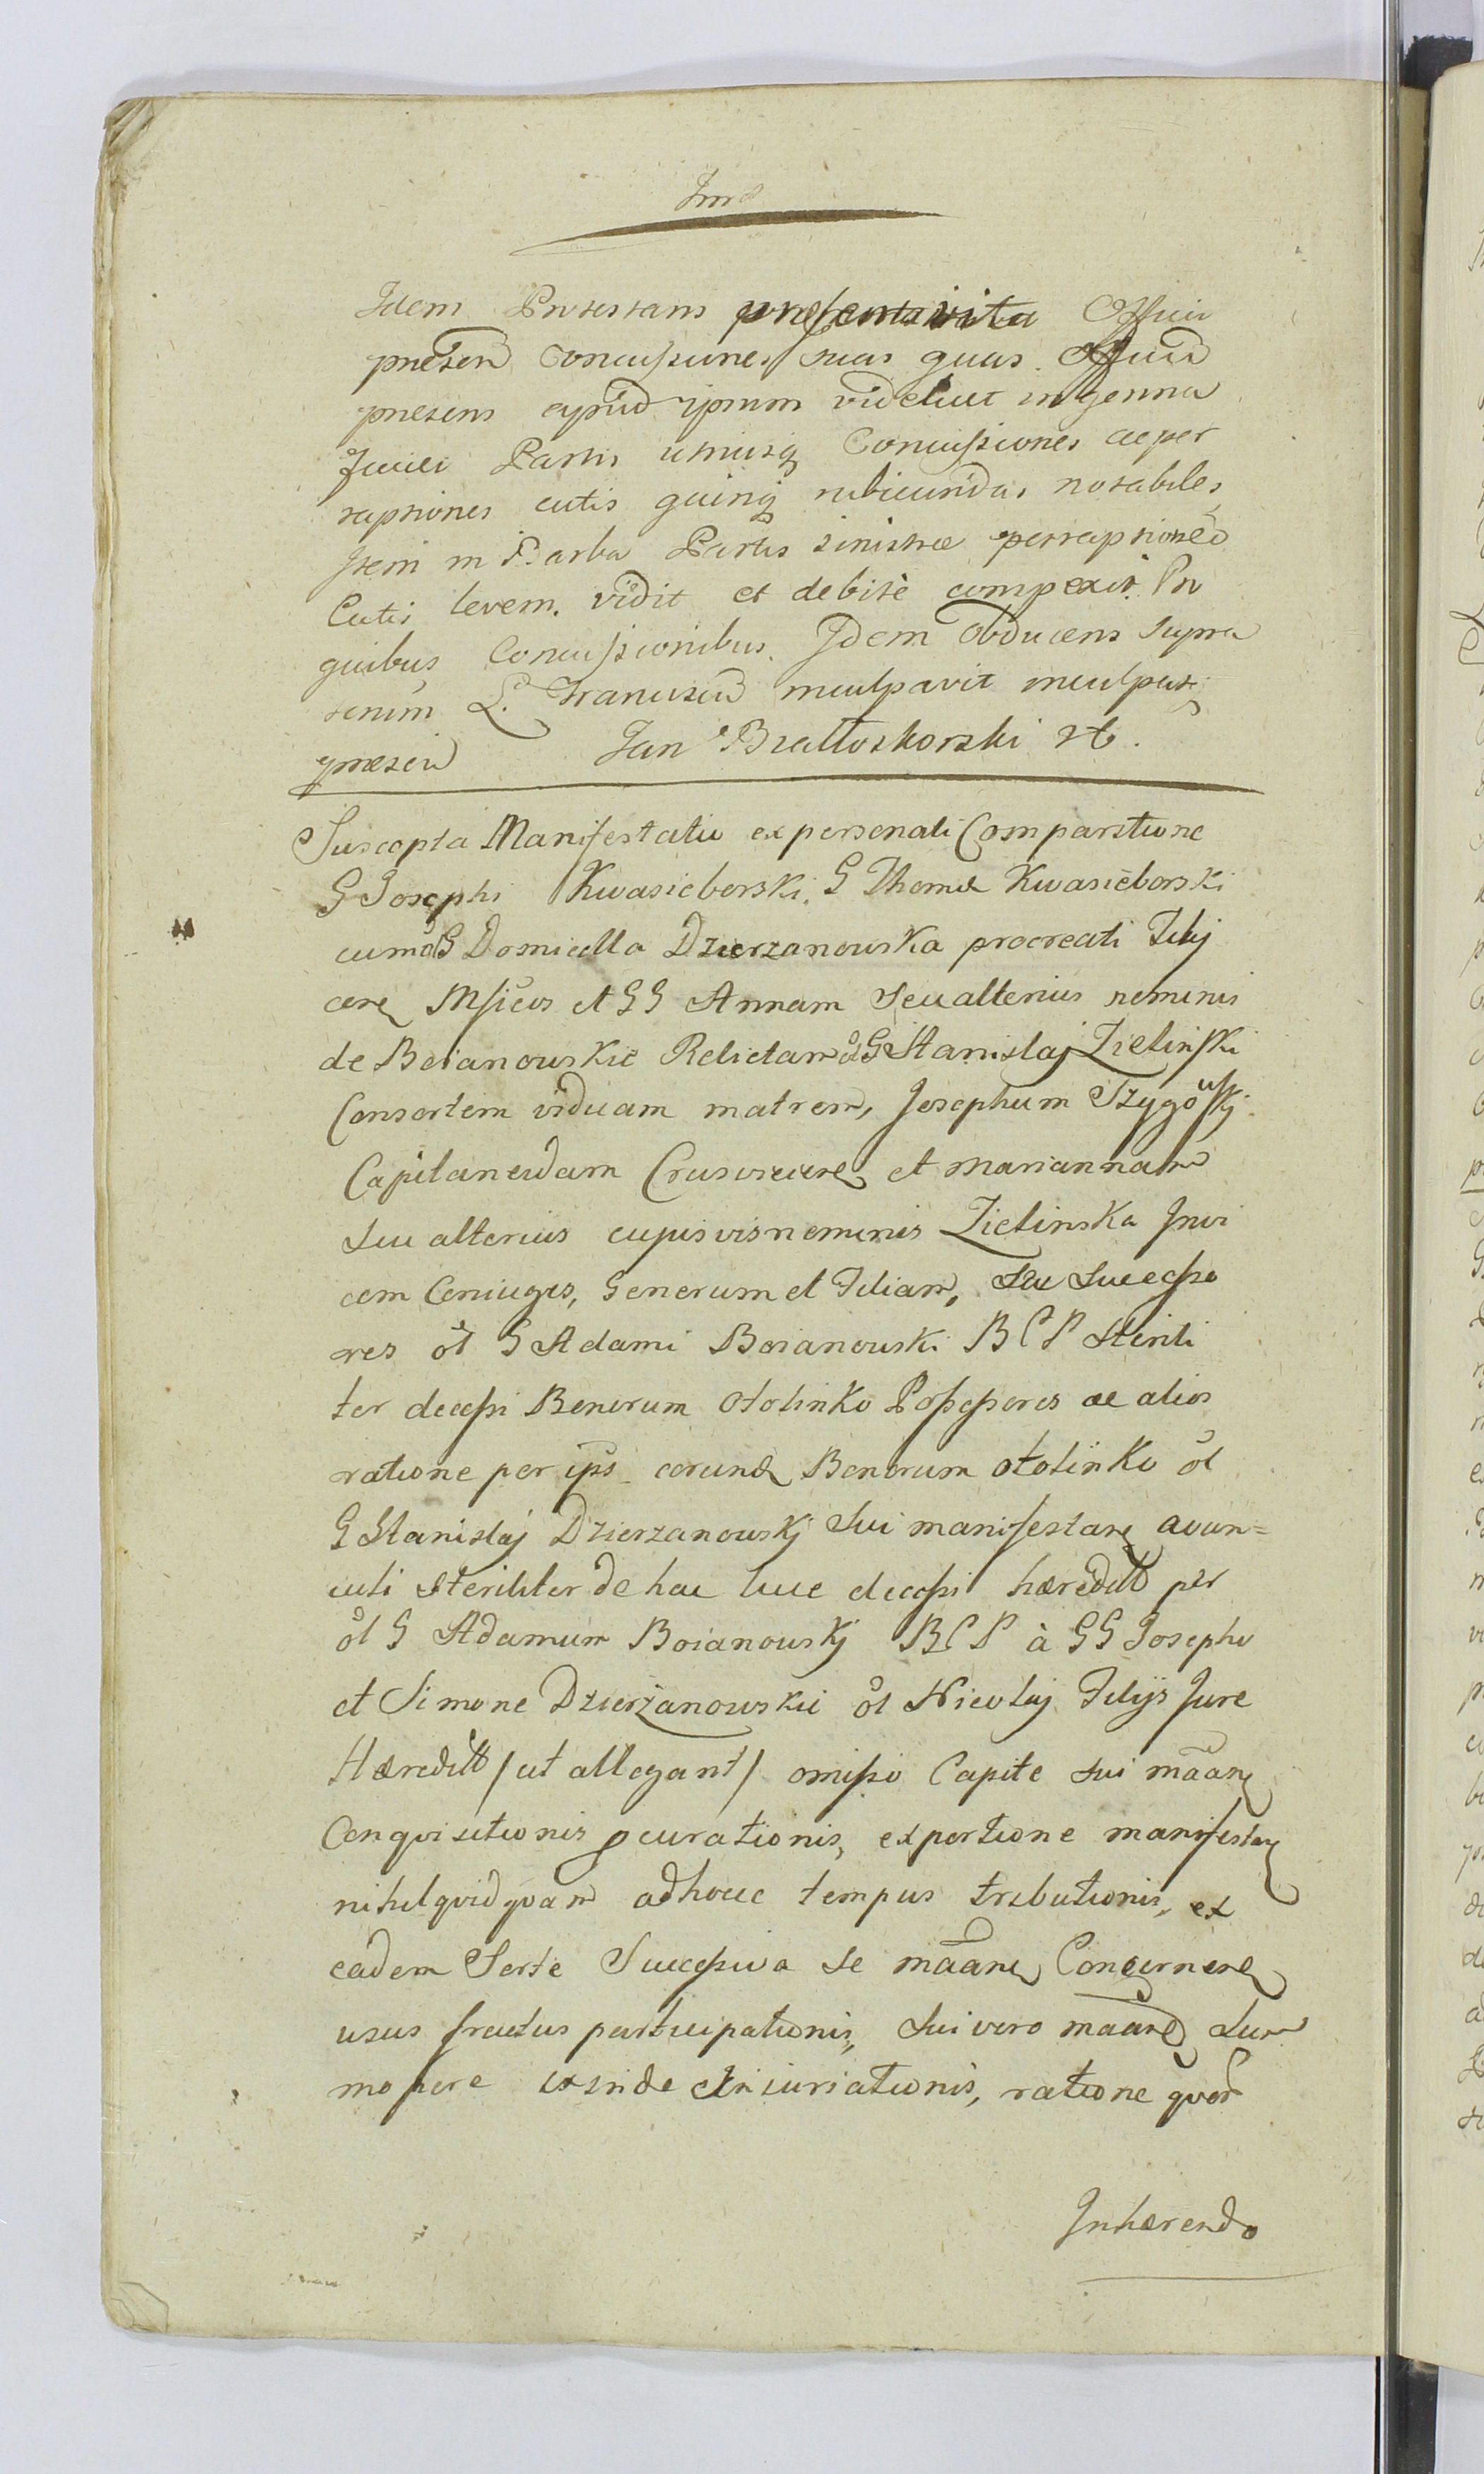 Idem Protestans presentavit Officio
presen Concussiones suas quas Officiũ
presens apud ipsum videlicet in genna
faciei Partis utriusq Concussiones ac per
raptiones cutis quinq rubicundas notabiles
Item in Barba Partis sinistræ perraptionẽ
Cutis levem. vidit et debitè compexit. Pro
quibus Concussionibus. Idem Obducens supra
Francisũ inculpavit
presen Jan Białłoskorski
Suscepta Manifestatio ex personali Comparitione
G Josephi Kwasieborski, G Thomæ Kwasieborski
cum G Domicella Dzierzanowska procreati Filij
et GG Annam Seu alterius nominis
de Boianowskie Relictam ol G Stanislaj Zielinski
Consortem viduam matrem, Josephum
et Mariannam
Seu alterius cujusvis nominis Zielinska Invi
cem Coniuges, Generum et Filiam, Seu Successo
res ol G Adami Boianowski B C P Sterili
ter decessi Bonorum Ototinko Possessores ac alios
ratione per ips eorund Bonorum Ototinko ol
G Stanislaj Dzierzanowskj Sui manifestanẽ avun=
culi Steriliter de hac luce decessi hæreditt per
ol G Adamum Boianowskj B C P à GG Josepho
et Simone Dzierżanowskie ol Nicolaj Filijs Jure
Hæreditt / ut allegant / omisso Capite sui mãanẽ
Conquisitionis pcurationis, ex portione manifestanẽ
nihil quidquam adhocce tempus tributionis, ex
eadem Sorte Successiva se mãanẽ Concernenẽ
usus fructus participationis, Sui vero mãanẽ Sum
mopere exinde Iniuriationis, ratione quor
Inhærendo